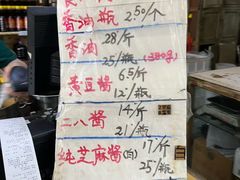 香油瓶 2.50/个
香油 28/斤
25/瓶
黄豆酱 6.5/斤
12/瓶
二八酱 14/斤
21/瓶
纯芝麻酱(白) 17/斤
25/瓶